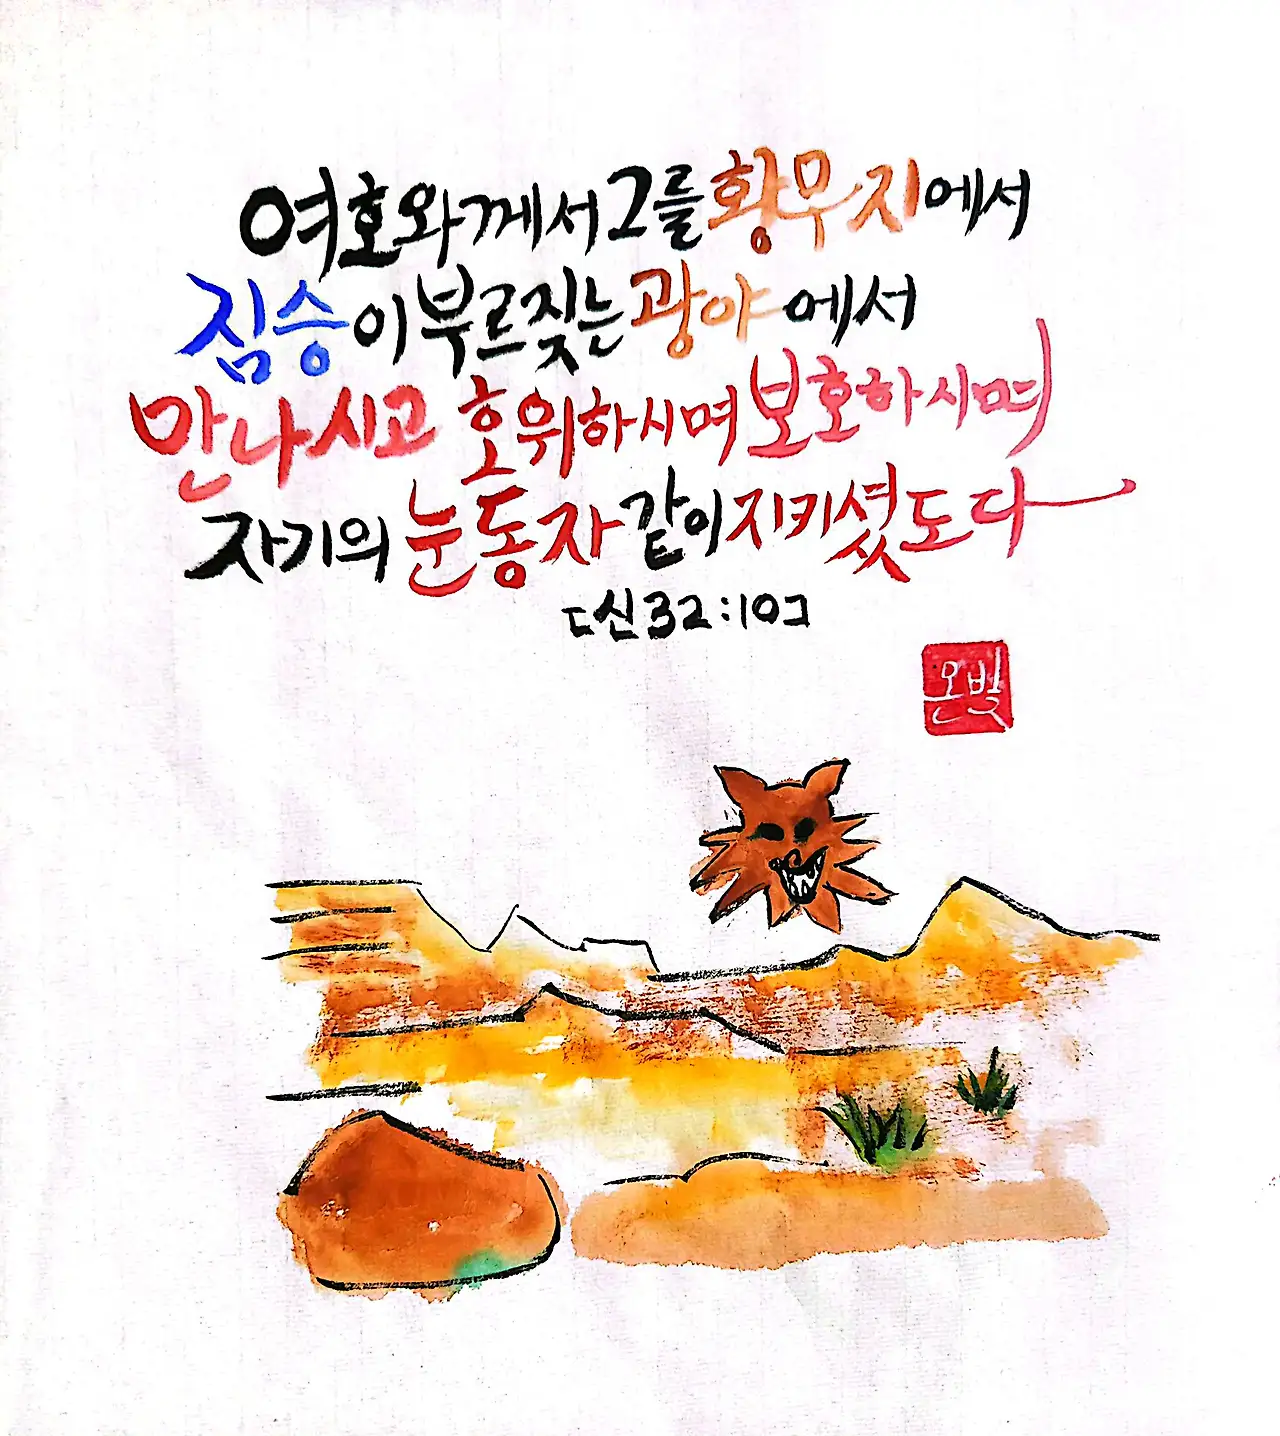 여호와께서 그를 황무지에서
짐승이 부르짖는 광야에서
만나시고 호위하시며 보호하시며
자기의 눈동자 같이 지키셨도다
[신32:10]
온빛